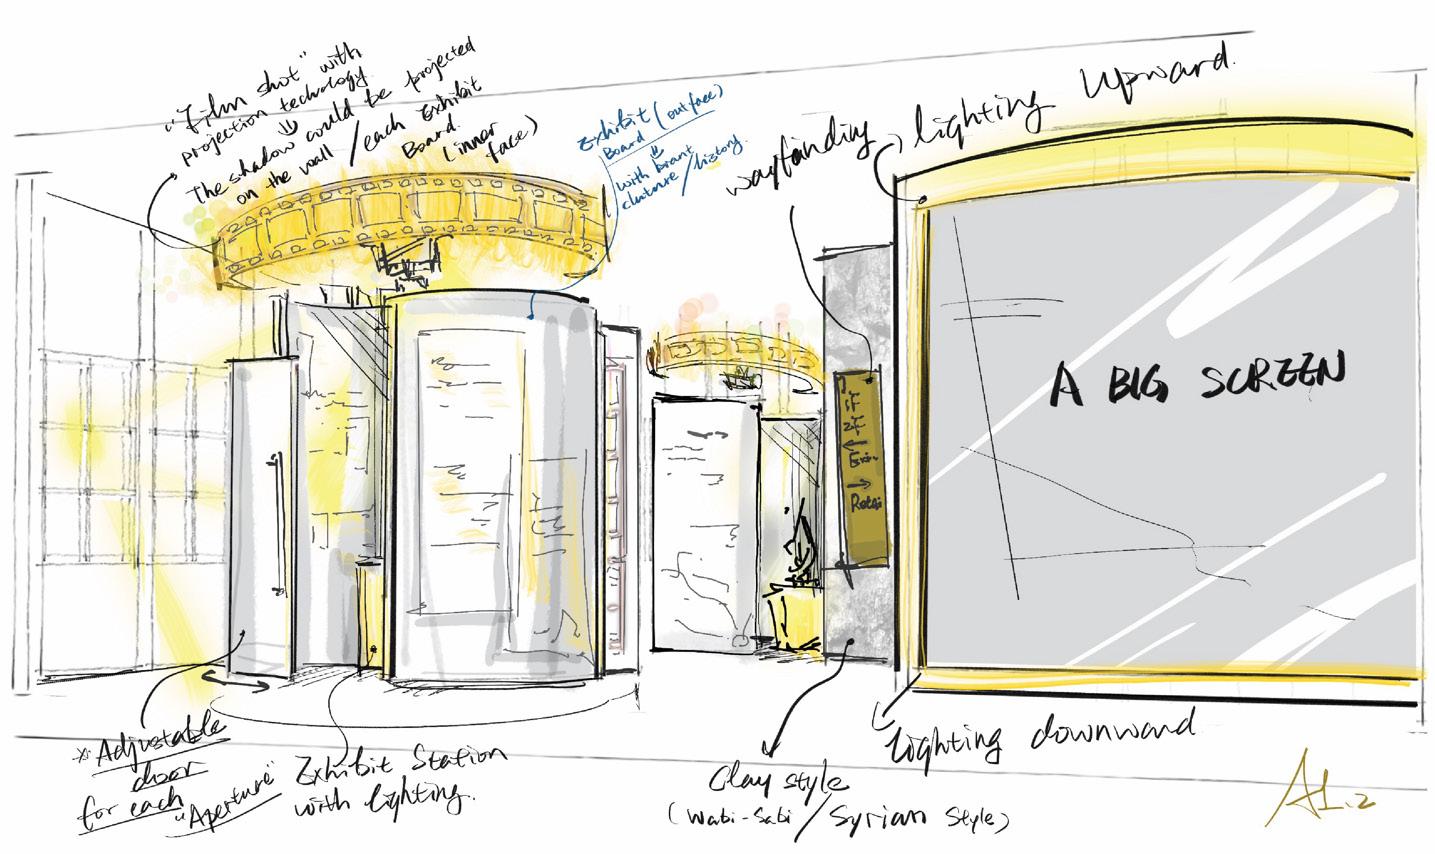 "Film shot" with
projection technology.
The shadow could be projected
on the wall / each Exhibit
Board.
(inner
face)
Exhibit (outface)
Board
with
/history.
wayfanding
lighting Upward.
A BIG SCREEN
1F
2F
← Exi..
→ Retai
※. Adjustable
door
for each
"Aperture"
Exhibit Station
with lighting.
Clay style
(Wabi-Sabi / Syrian Style)
lighting downward
A1.2